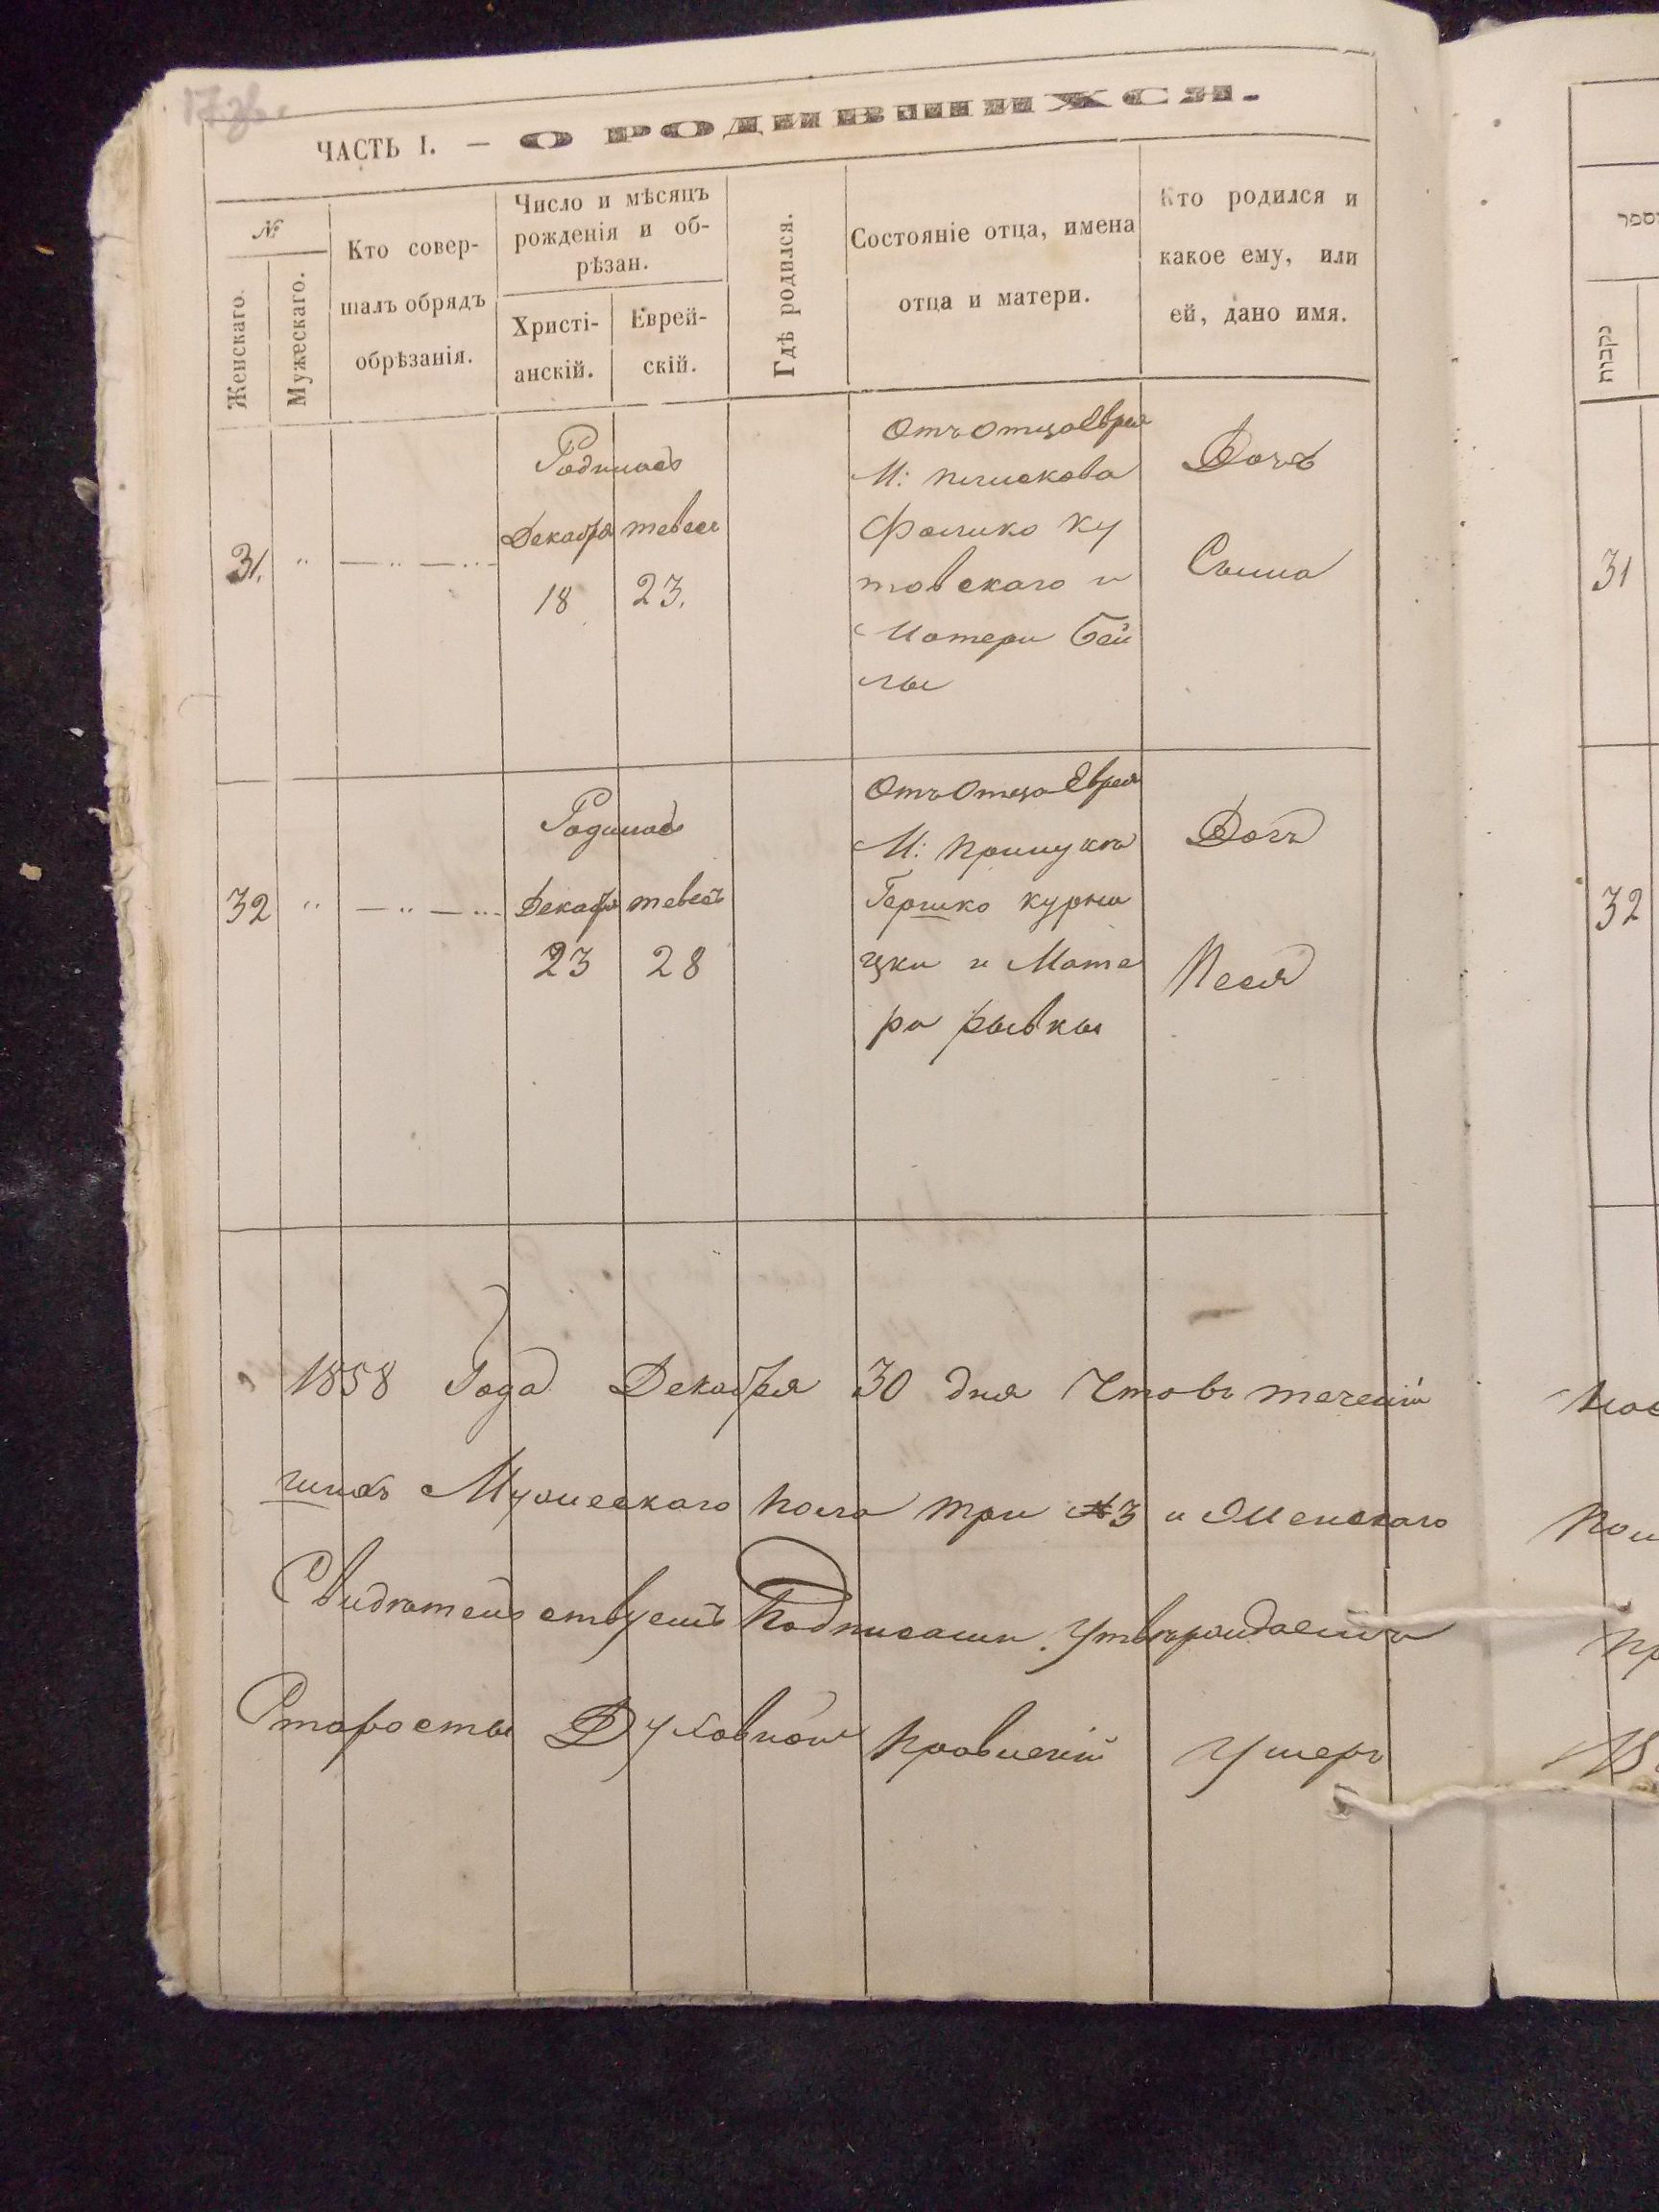 ЧАСТЬ I. — О РОДИВШИХСЯ.
№
Женскаго.
Мужескаго.
Кто совер-
шалъ обрядъ
обрѣзанія.
Число и мѣсяцъ
рожденія и об-
рѣзан.
Христі-
анскій.
Еврей-
скій.
Гдѣ родился.
Состояніе отца, имена
отца и матери.
Кто родился и
какое ему, или
ей, дано имя.
31.
Родилась
Декабря тевесъ
18 23.
Отъ отца Еврея
М:
Фалико Ку
товскаго и
Матери Бей
лы
Дочъ
32
Родилась
Декабря тевесъ
23 28
Отъ Отца Еврея
М: Прилукъ
Гершко куры
цки и Мате
ри рывкы
Дочъ
Песя
1858 Года Декабря 30 дня Что въ теченіи
Мужескаго пола три №3 и Женскаго
Свидѣтельствуемъ Подписами. Утвѣрждаемъ
Старосты Духовной Правленій Умеръ
ספר
נקבות
31
32